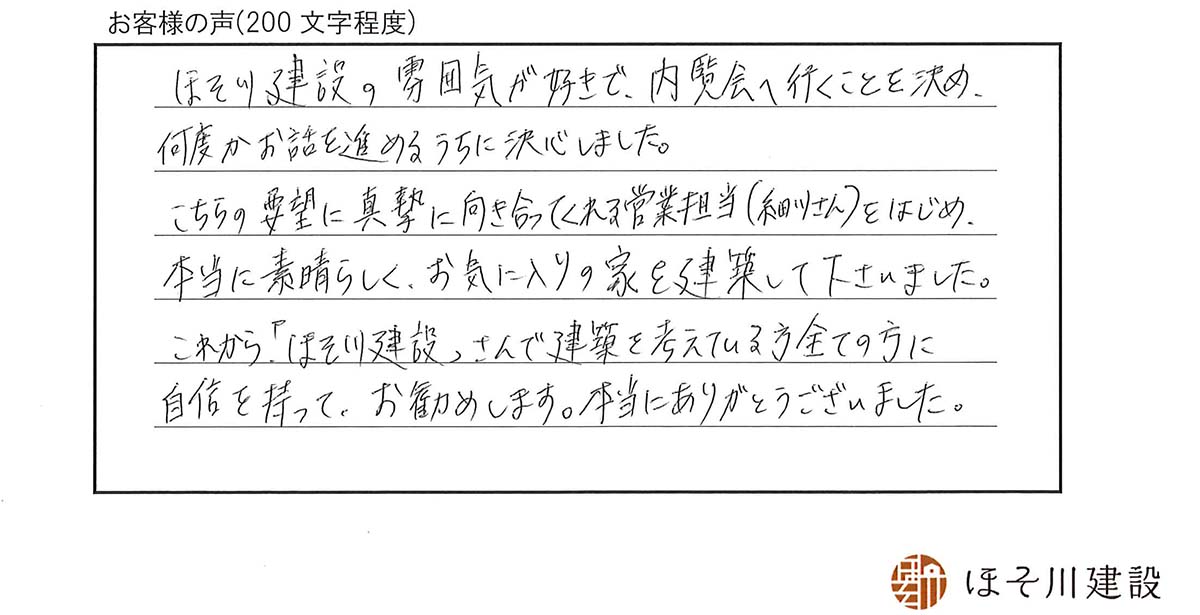 お客様の声(200 文字程度)
ほそ川建設の雰囲気が好きで、内覧会へ行くことを決め、
何度かお話を進めるうちに決心しました。
こちらの要望に真摯に向き合ってくれる営業担当(細川さん)をはじめ、
本当に素晴らしく、お気に入りの家を建築して下さいました。
これから、「ほそ川建設」さんで建築を考えている方全ての方に
自信を持って、お勧めします。本当にありがとうございました。
ほそ川建設